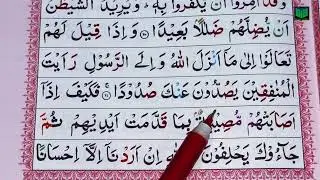 وَقَدْ اُمِرُوْٓا اَنْ يَّكْفُرُوْا بِهٖ ؕ وَيُرِيْدُ الشَّيْطٰنُ
اَنْ يُّضِلَّهُمْ ضَلٰلًاۢ بَعِيْدًا ﴿۶۰﴾ وَاِذَا قِيْلَ لَهُمْ
تَعَالَوْا اِلٰى مَآ اَنْزَلَ اللّٰهُ وَاِلَى الرَّسُوْلِ رَاَيْتَ
الْمُنٰفِقِيْنَ يَصُدُّوْنَ عَنْكَ صُدُوْدًا ﴿۶۱﴾ فَكَيْفَ اِذَآ
اَصَابَتْهُمْ مُّصِيْبَةٌۢ بِمَا قَدَّمَتْ اَيْدِيْهِمْ ثُمَّ
جَآءُوْكَ يَحْلِفُوْنَ ۖ بِاللّٰهِ اِنْ اَرَدْنَآ اِلَّآ اِحْسَانًا